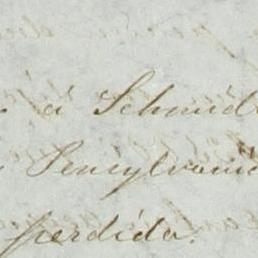 à Schmidt
Pensylvania
perdida.